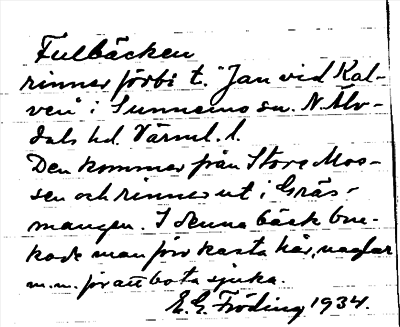 Fulbäcken
rinner förbi t. "Jan vid Kal-
ven" i Sunnemo sn. N. Älv-
dals hd. Värml. l.
Den kommer från Stora Mos-
sen och rinner ut i Gräs-
mangen. I denna bäck bru-
kade man förr kasta hår, naglar
m.m. för att bota sjuka.
E. G. Fröding 1934.